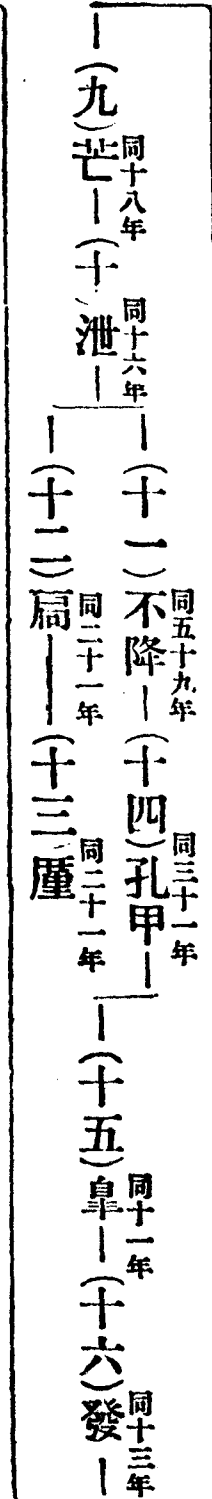 (九)芒 同十八年
(十)泄 同十六年
(十一)不降 同五十九年
(十四)孔甲 同三十一年
(十二)扃 同二十一年
(十三)厪 同二十一年
(十五)皐 同十一年
(十六)發 同十三年